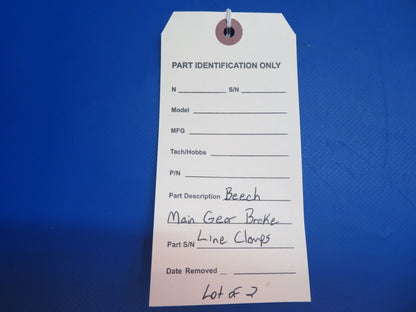 PART IDENTIFICATION ONLY
N S/N
Model
MFG
Tach/Hobbs
P/N
Part Description Beech
Main Gear Brake
Part S/N Line Clamps
Date Removed
Lot of 2